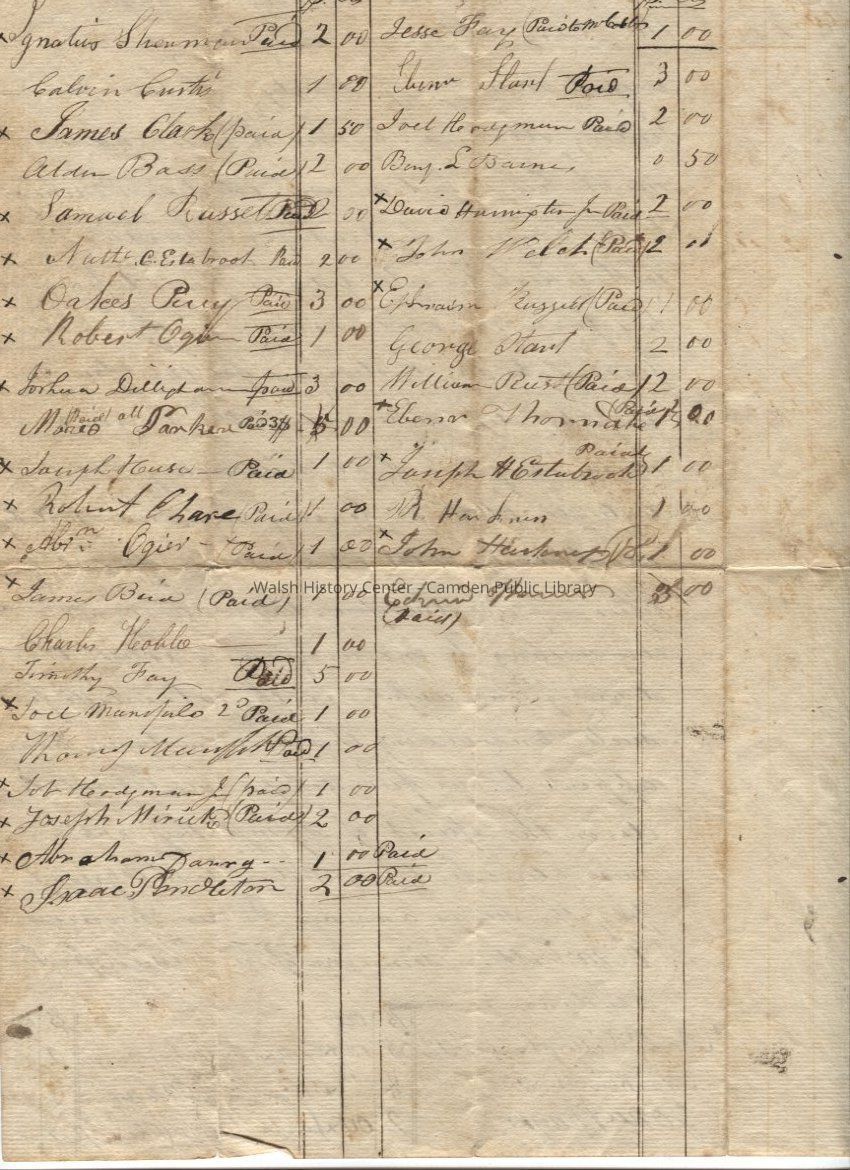 Ignatius Sherman Paid 2 00
Calvin Curtis 1 00
x James Clark (paid) 1 50
Alden Bass (Paid) 2 00
x Samuel Russel Paid 2 00
x Nath C. Estabrook Paid 2 00
x Oakes Perry Paid 3 00
x Robert Ogier Paid 1 00
x Joshua Dillingham paid 3 00
Paid all
Moses Parker Paid 3 00
x Joseph Huse Paid 1 00
x Robert Chase Paid 1 00
x Abrm Ogier (Paid) 1 00
x James Bird (Paid) 1 00
Charls Noble 1 00
Timothy Fay Paid 5 00
x Joel Mansfild 2d Paid 1 00
Thomas Paid 1 00
x Job Hodgman Jr (paid) 1 00
x Joseph Mirick (Paid) 2 00
x Abraham 1 00 Paid
x Isaac Pendleton 2 00 Paid
Jesse Fay (Paid to 1 00
Ebenr Start Paid 3 00
Joel Hodgman Paid 2 00
Benj. L Barnes 0 50
x David Harrington Jr Paid 2 00
x John Welch (Paid) 2 00
x Ephraim Russell (Paid) 1 00
George Start 2 00
William Rust (Paid) 2 00
x Ebenr Thorndike (Paid) 1 00
Paid
x Joseph H Estabrook 1 00
1 00
x John Harkness 1 00
00
(Paid)
Walsh History Center - Camden Public Library